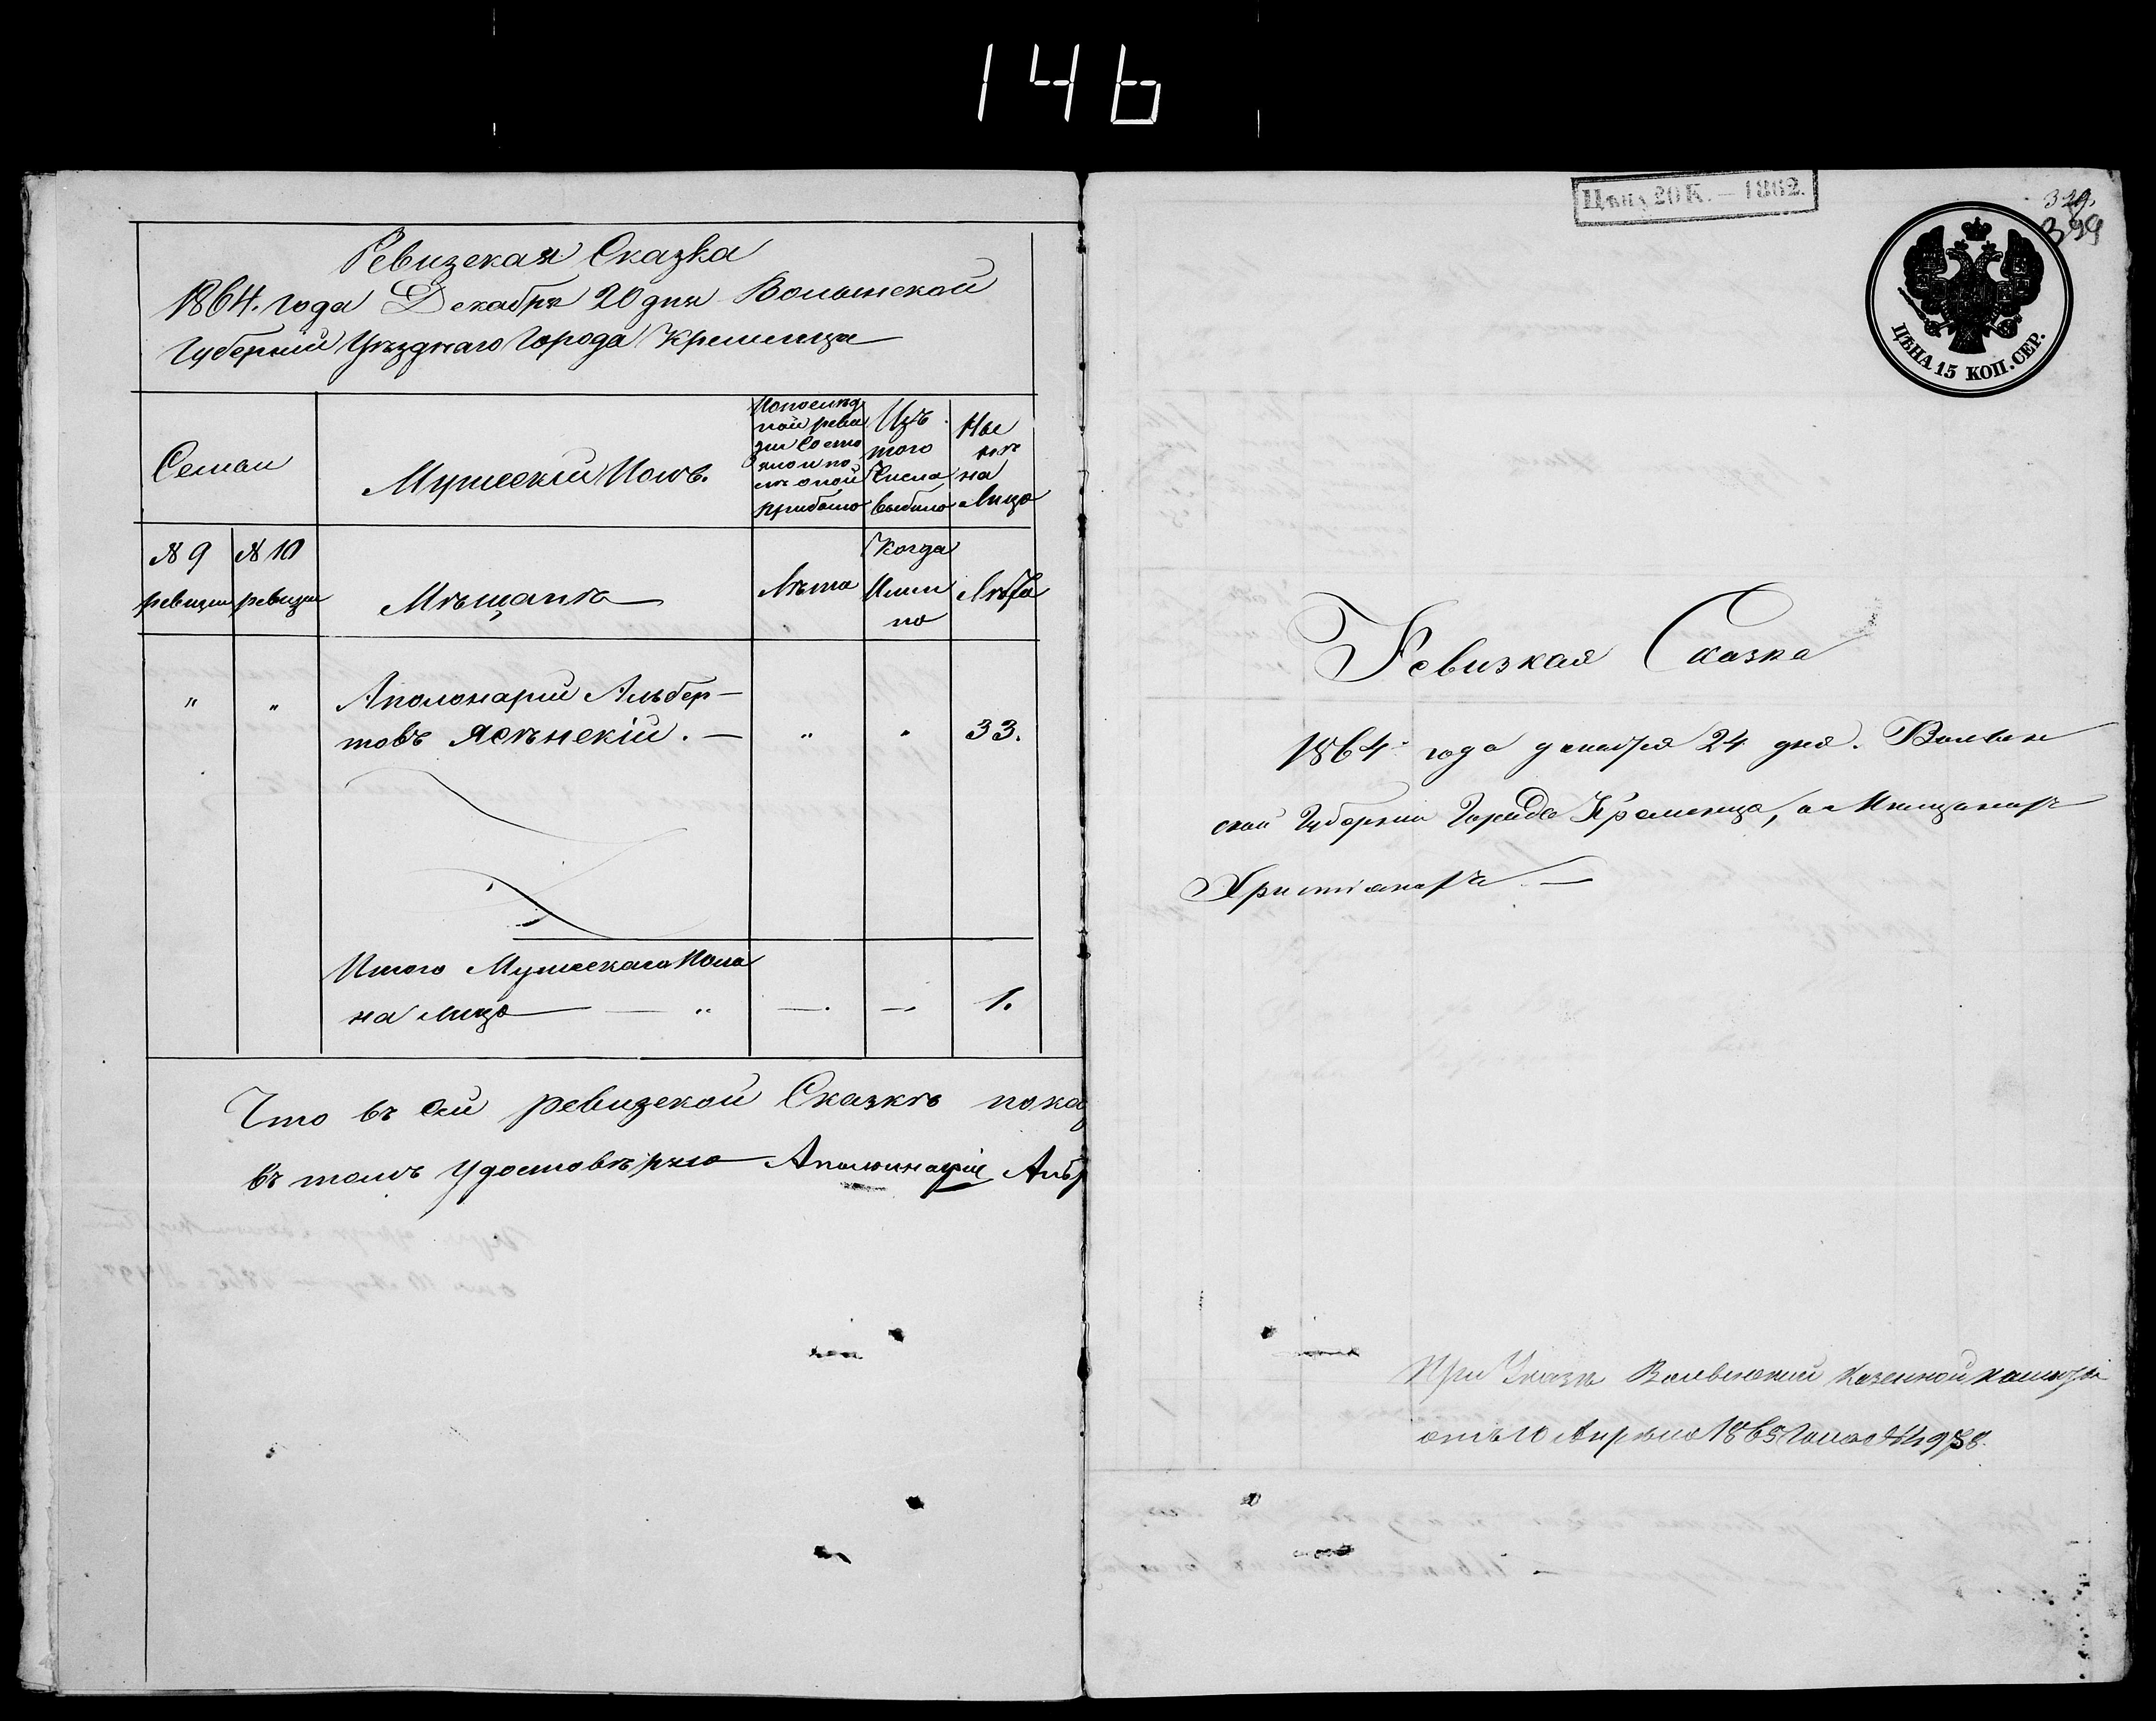 146
Ревизская Сказка
1864. года Декабря 20 дня Волынской
Губернии Уѣзднаго Города Кременца
Семьи
Мужескій Полъ.
По послѣд
ней реви
зіи состо
яло и по
слѣ оной
прибыло
Изъ
того
Числа
выбыло
Ны
нѣ
на
Лицо
№ 9
ревизіи
№ 10
ревизіи
Мѣщанъ
Лѣта
Когда
Имен
но
Лѣта
" "
Аполонарій Альбер-
товъ Ясѣнскій. — " " 33.
Итого Мужескаго Пола
на Лицо — — " — . — . 1.
Что въ сей ревизской Сказкѣ пока
въ томъ удостовѣряю Аполинарій Альб
Цѣна 20 К. — 1862.
329.
399
ЦѢНА 15 КОП. СЕР.
Ревизкая Сказка
1864 года декабря 24 дня. Волын
ской Губерніи Города Кременца, о Мищанахъ
Христіанахъ —
При Указѣ Волынской Казенной палаты
отъ 10 Апрѣля 1865 Года №